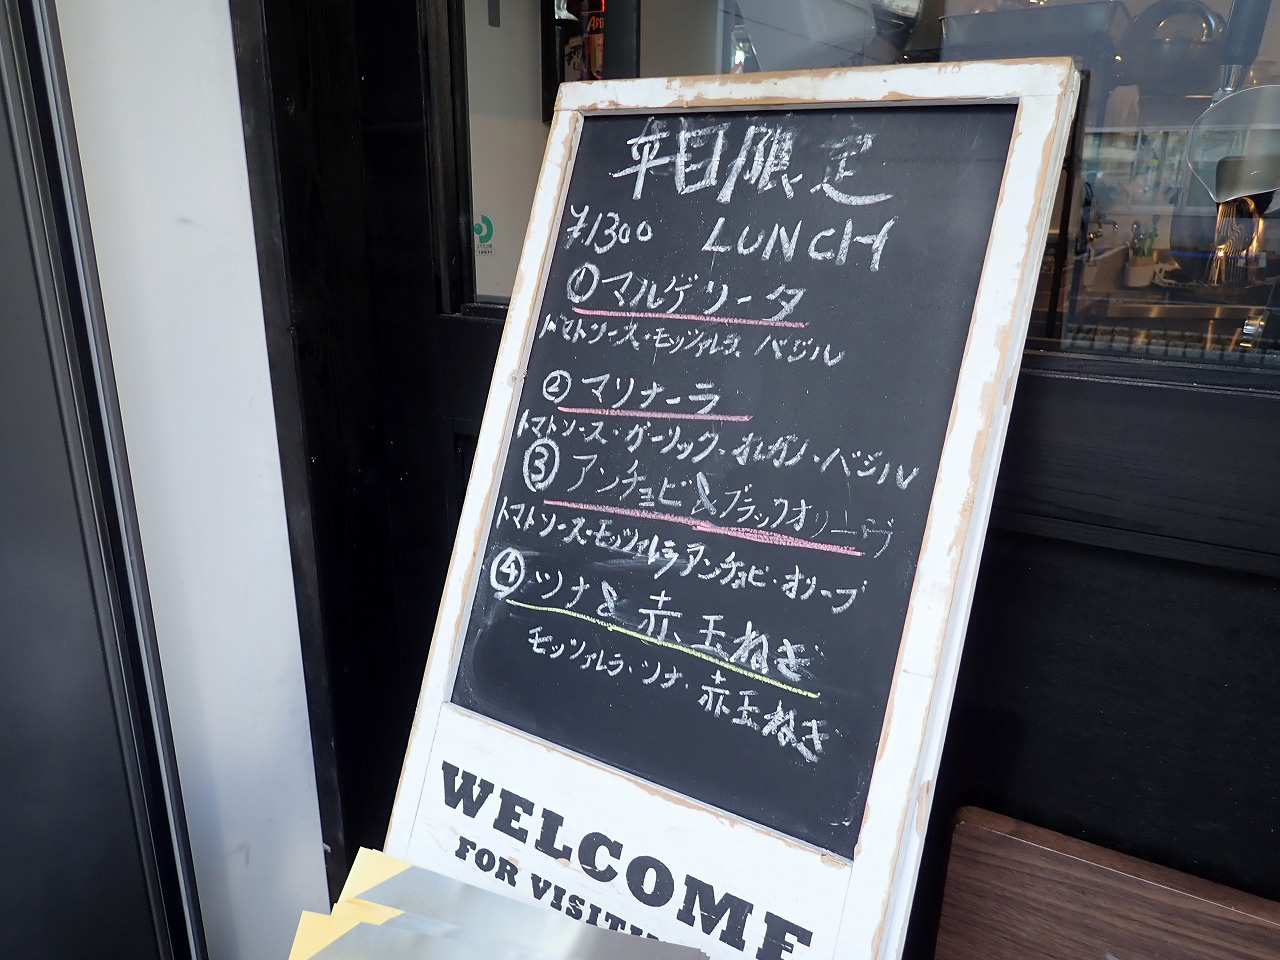 平日限定
¥1300 LUNCH
①マルゲリータ
トマトソース・モッツァレラ バジル
②マリナーラ
トマトソース・ガーリック・オレガノ・バジル
③アンチョビ&ブラックオリーヴ
トマトソース・モッツァレラ アンチョビ・オリーブ
④ツナ&赤玉ねぎ
モッツァレラ・ツナ・赤玉ねぎ
WELCOME
FOR